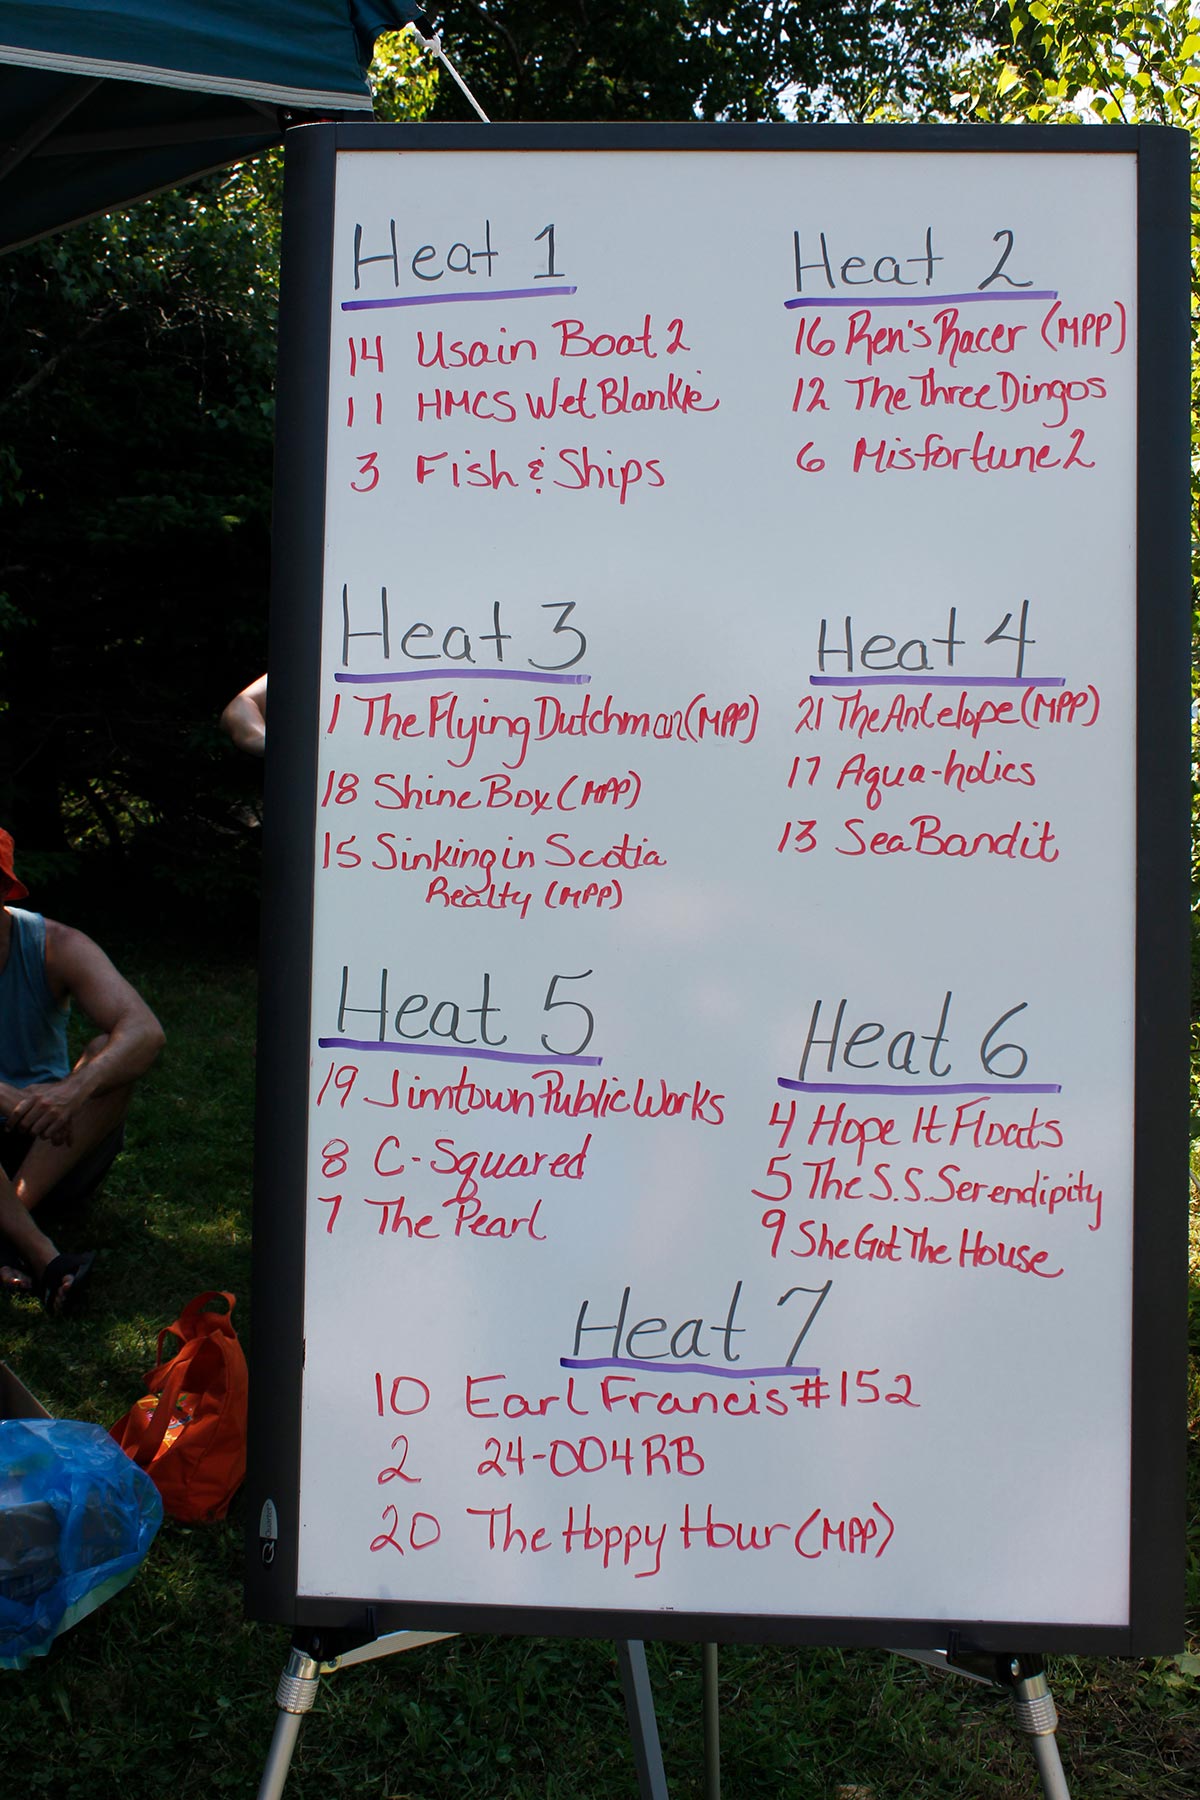 Heat 1
14 Usain Boat 2
11 HMCS Wet Blankie
3 Fish & Ships
Heat 2
16 Ren's Racer (MPP)
12 The Three Dingos
6 Misfortune 2
Heat 3
1 The Flying Dutchman (MPP)
18 Shine Box (MPP)
15 Sinking in Scotia
Realty (MPP)
Heat 4
21 The Antelope (MPP)
17 Aqua-holics
13 Sea Bandit
Heat 5
19 Jimtown Public Works
8 C-Squared
7 The Pearl
Heat 6
4 Hope It Floats
5 The S.S. Serendipity
9 She Got The House
Heat 7
10 Earl Francis #152
2 24-004RB
20 The Hoppy Hour (MPP)
Quartet